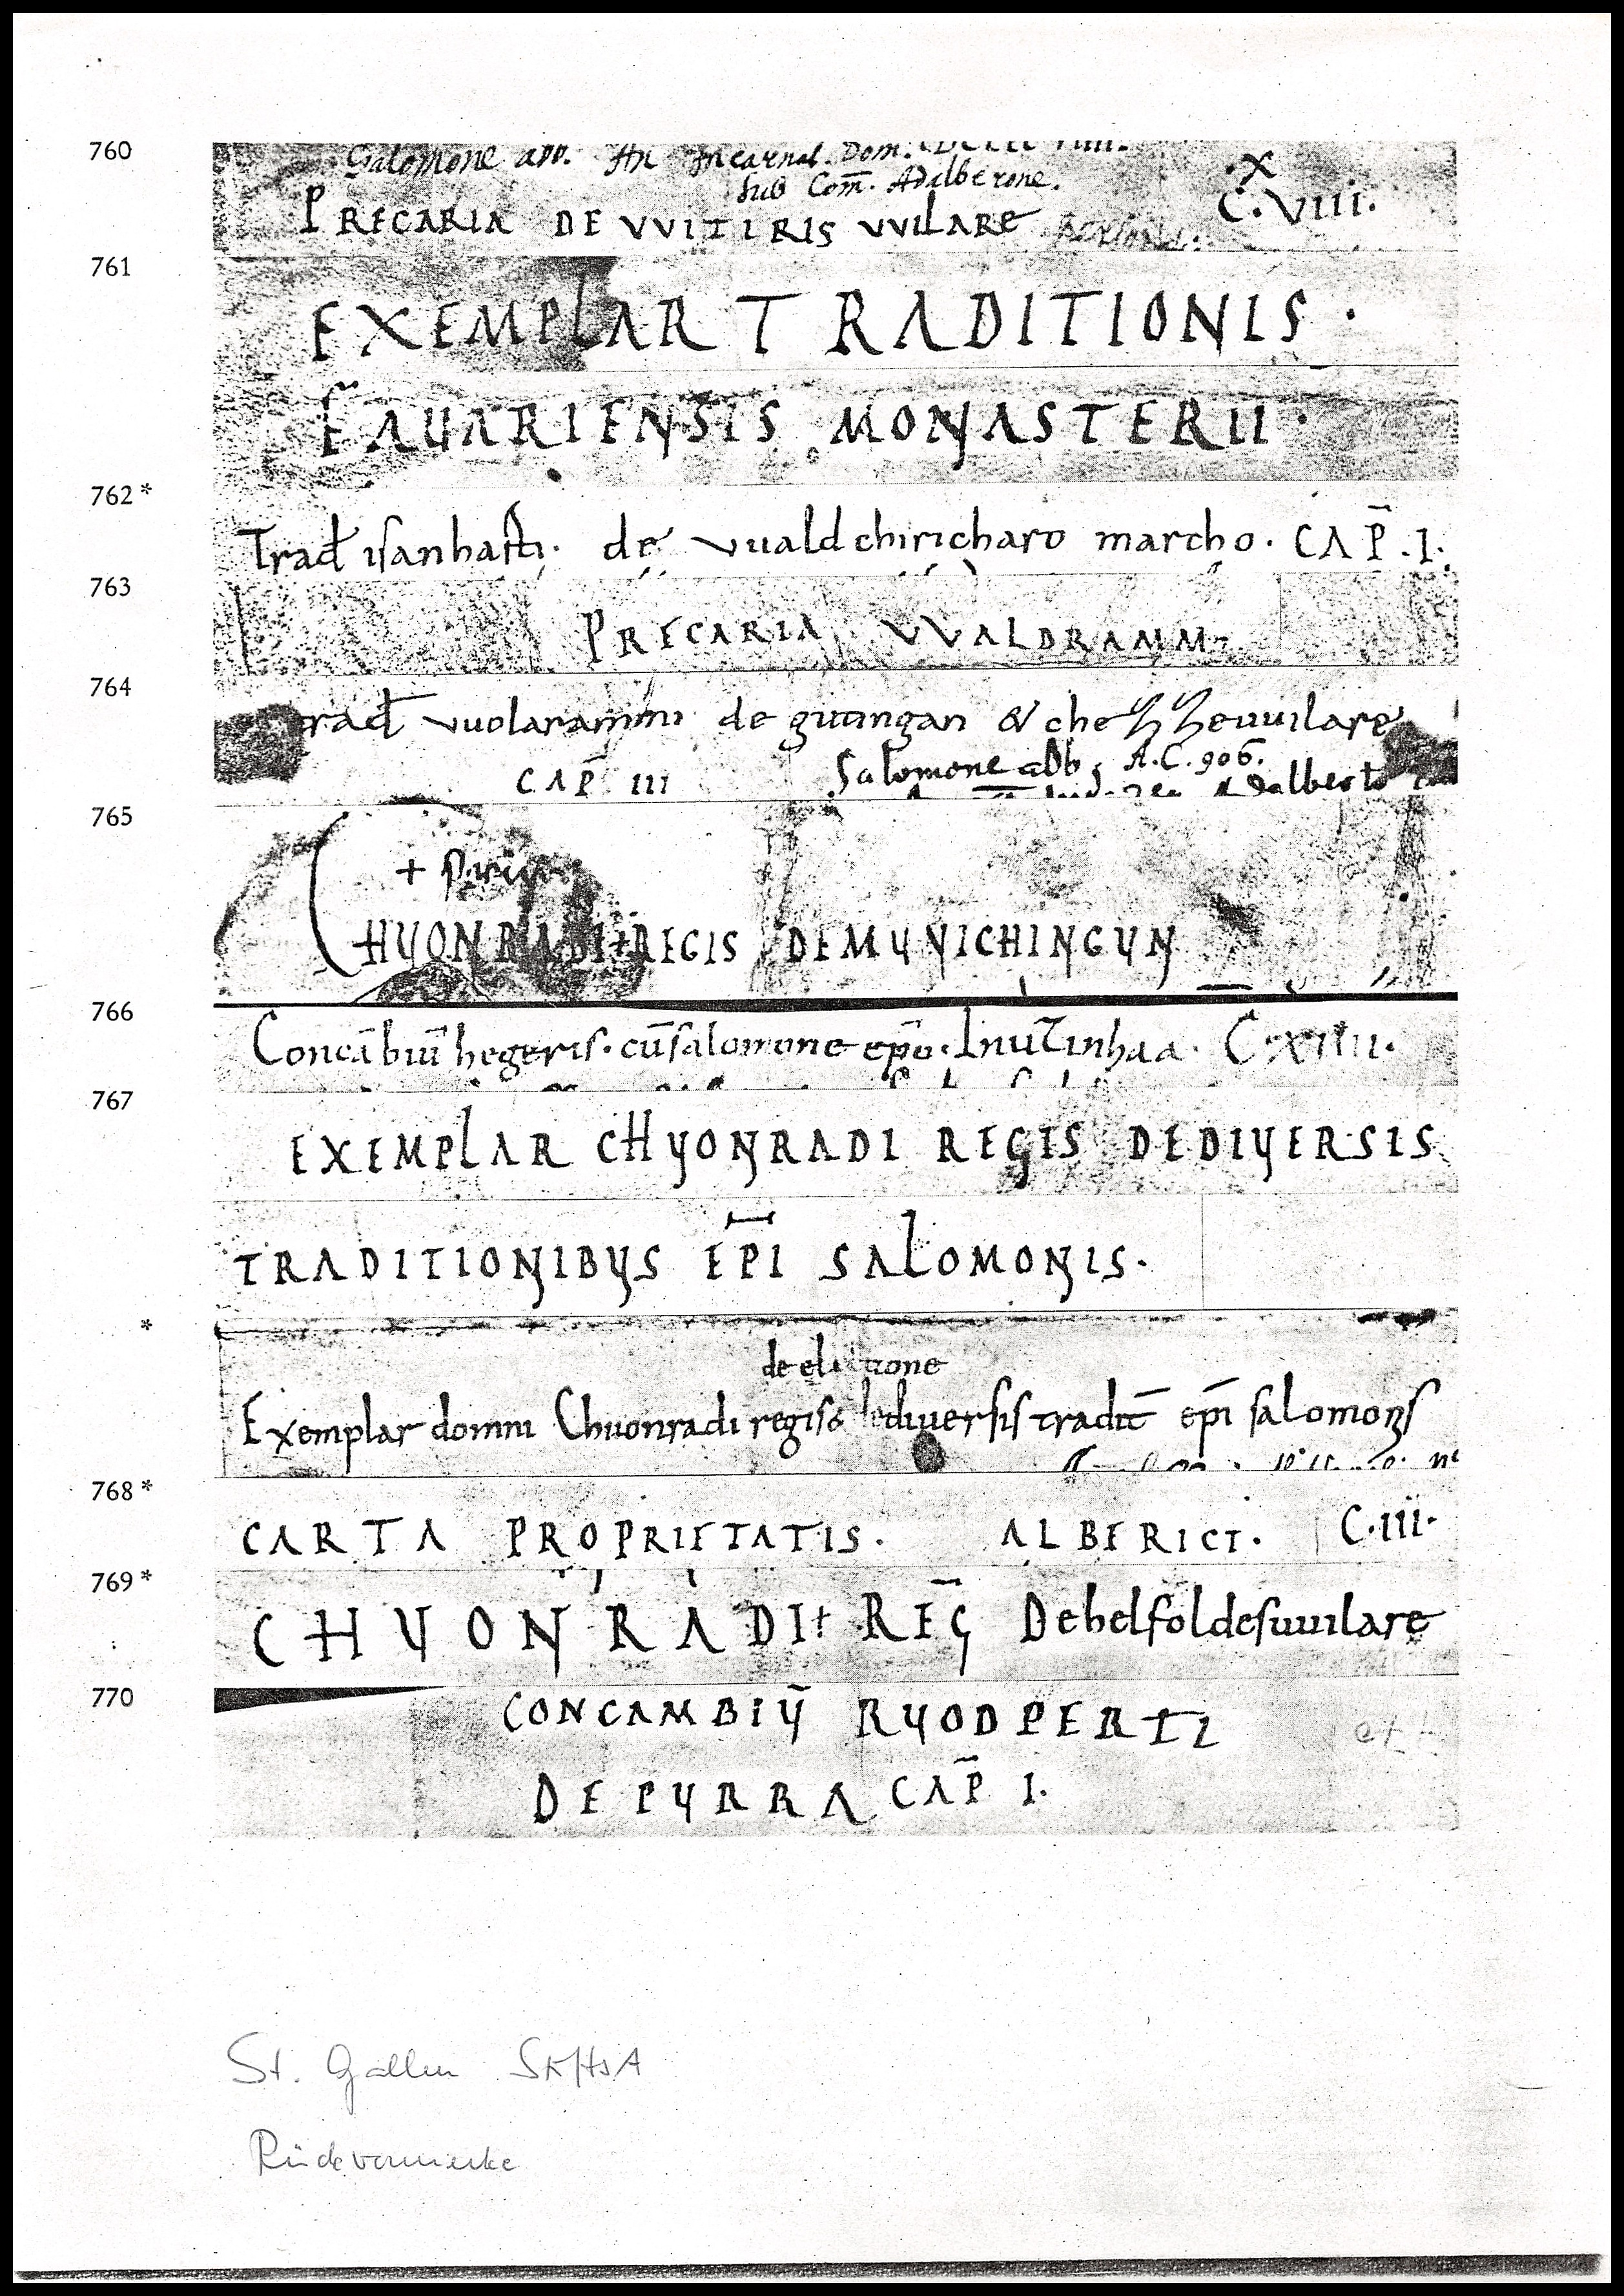 760
Salomone abb. An Incarnat. Dom.
Sub Com̄. Adalberone.
X
PRECARIA DE VVITIRIS VVILARE
C. VIII.
761
EXEMPLAR TRADITIONIS ·
FAUARIENSIS MONASTERII ·
762*
Trad isanharti. de vualdchiricharo marcho. CAP̄. I.
763
PRECARIA VVALDRAMMI
764
trad vuolarammi de guingan & che vuilare
CAP̄ III
Salomone abb, A.C. 906.
Adalberto
765
+
HUONRADI REGIS DE MUNICHINGUN
766
Concābiū hegeris. cū salomone ep̄o. C. XIIII.
767
EXEMPLAR CHUONRADI REGIS DE DIUERSIS
TRADITIONIBUS EP̄I SALOMONIS.
*
de electione
Exemplar domni Chuonradi regis & de diuersis tradit̄ ep̄i salomonis
768*
CARTA PROPRIETATIS. ALBERICI. C. III.
769*
CHUONRADI REḠ De helfoldesuuilare
770
CONCAMBIŪ RUODPERTI
DE PURRA CAP̄ I.
St. Gallen StiftsA
Rückvermerke